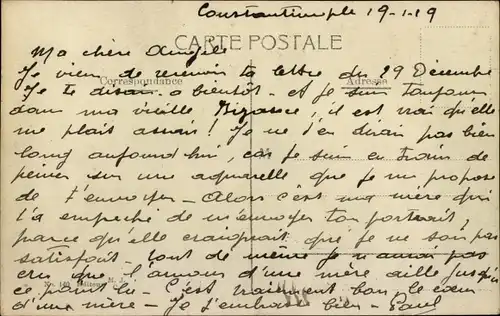 Constantinople 19-1-19
CARTE POSTALE
Ma chère Angèle
Correspondance
Adresse
Je viens de recevoir ta lettre du 29 Décembre
Je te disais à bientôt - et je suis toujours
dans ma vieille Byzance, il est vrai qu'elle
me plait assez! Je ne t'en dirai pas bien
long aujourd'hui, car je suis en train de
peiner sur une aquarelle que je me propose
de t'envoyer - Alors c'est ma mère qui
t'a empêché de m'envoyer ton portrait,
parce qu'elle craignait que je ne sois pas
satisfait. tout de même je n'aurai pas
cru que l'amour d'une mère aille jusqu'à
ce point là - C'est vraiment bon le cœur
d'une mère - Je t'embrasse bien - Paul